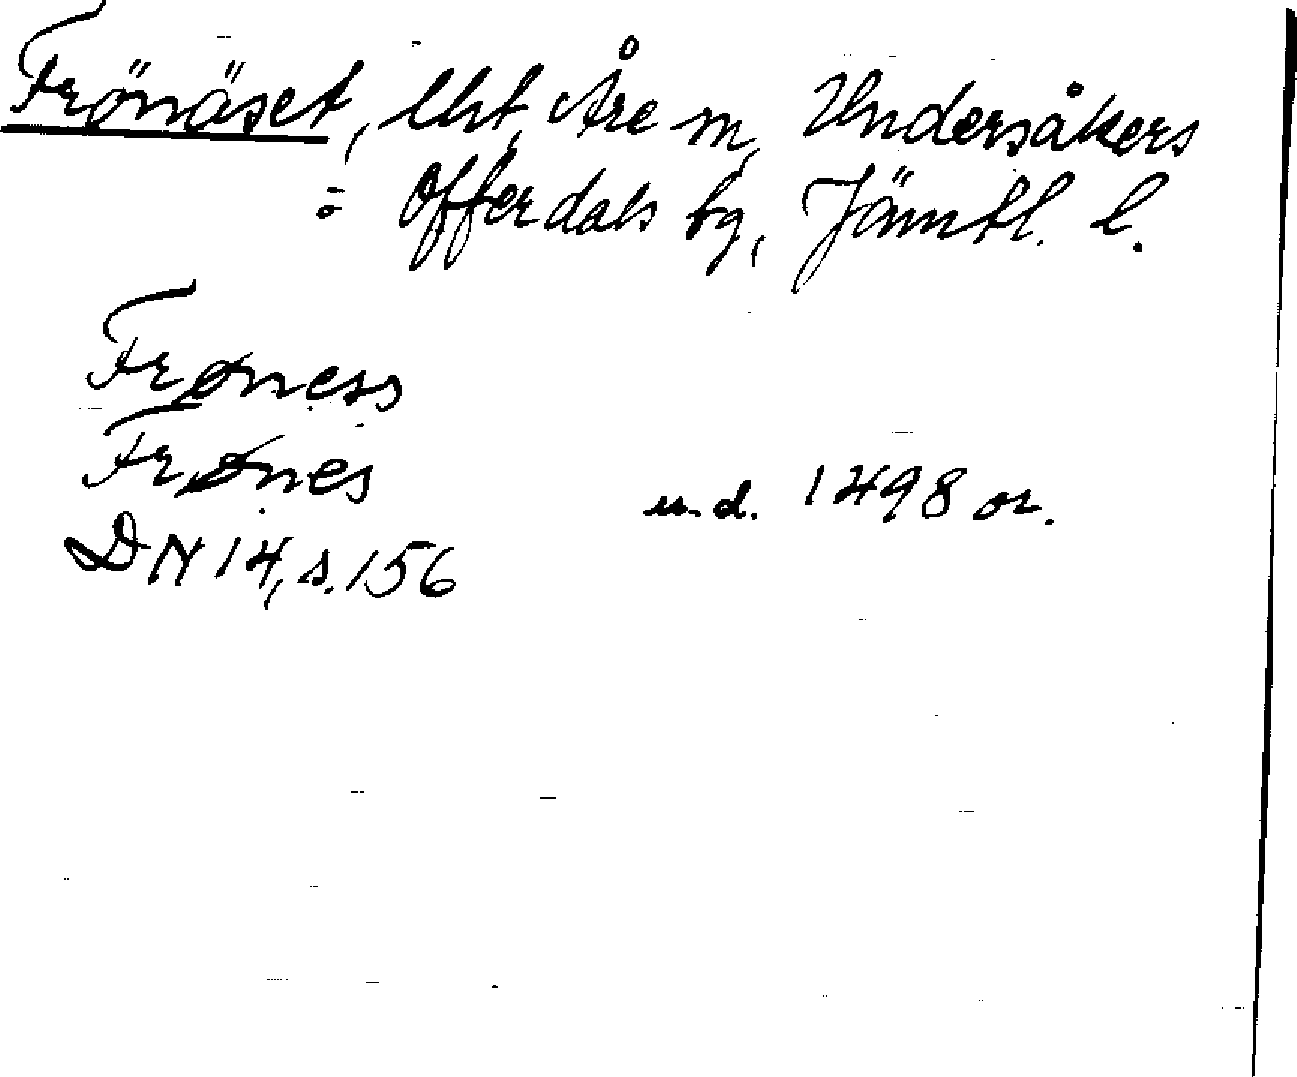 Frönäset, Uht, Åre sn, Undersåkers
o Offerdals tg, Jämtl. l.
Frøness
Frønes
u.d. 1498 or.
DN 14, s. 156